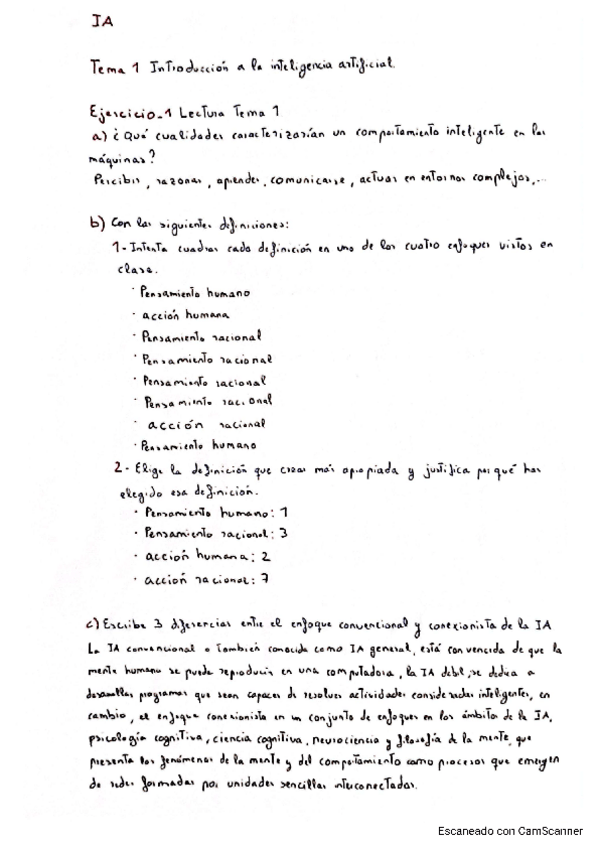 IA
Tema 1 Introducción a la inteligencia artificial.
Ejercicio_1 Lectura Tema 1
a) ¿Qué cualidades caracterizarían un comportamiento inteligente en las
máquinas?
Percibir, razonar, aprender, comunicarse, actuar en entornos complejos,...
b) Con las siguientes definiciones:
1- Intenta cuadrar cada definición en uno de los cuatro enfoques vistos en
clase.
· Pensamiento humano
· acción humana
· Pensamiento racional
· Pensamiento racional
· Pensamiento racional
· Pensamiento racional
· acción racional
· Pensamiento humano
2- Elige la definición que creas más apropiada y justifica por qué has
elegido esa definición.
· Pensamiento humano: 1
· Pensamiento racional: 3
· acción humana: 2
· acción racional: 7
c) Escribe 3 diferencias entre el enfoque convencional y conexionista de la IA
La IA convencional o también conocida como IA general, está convencida de que la
mente humana se puede reproducir en una computadora, la IA debil, se dedica a
desarrollar programas que sean capaces de resolver actividades consideradas inteligentes, en
cambio, el enfoque conexionista en un conjunto de enfoques en los ámbitos de la IA,
psicología cognitiva, ciencia cognitiva, neurociencia y filosofía de la mente, que
presenta los fenómenos de la mente y del comportamiento como procesos que emergen
de redes formadas por unidades sencillas interconectadas.
Escaneado con CamScanner